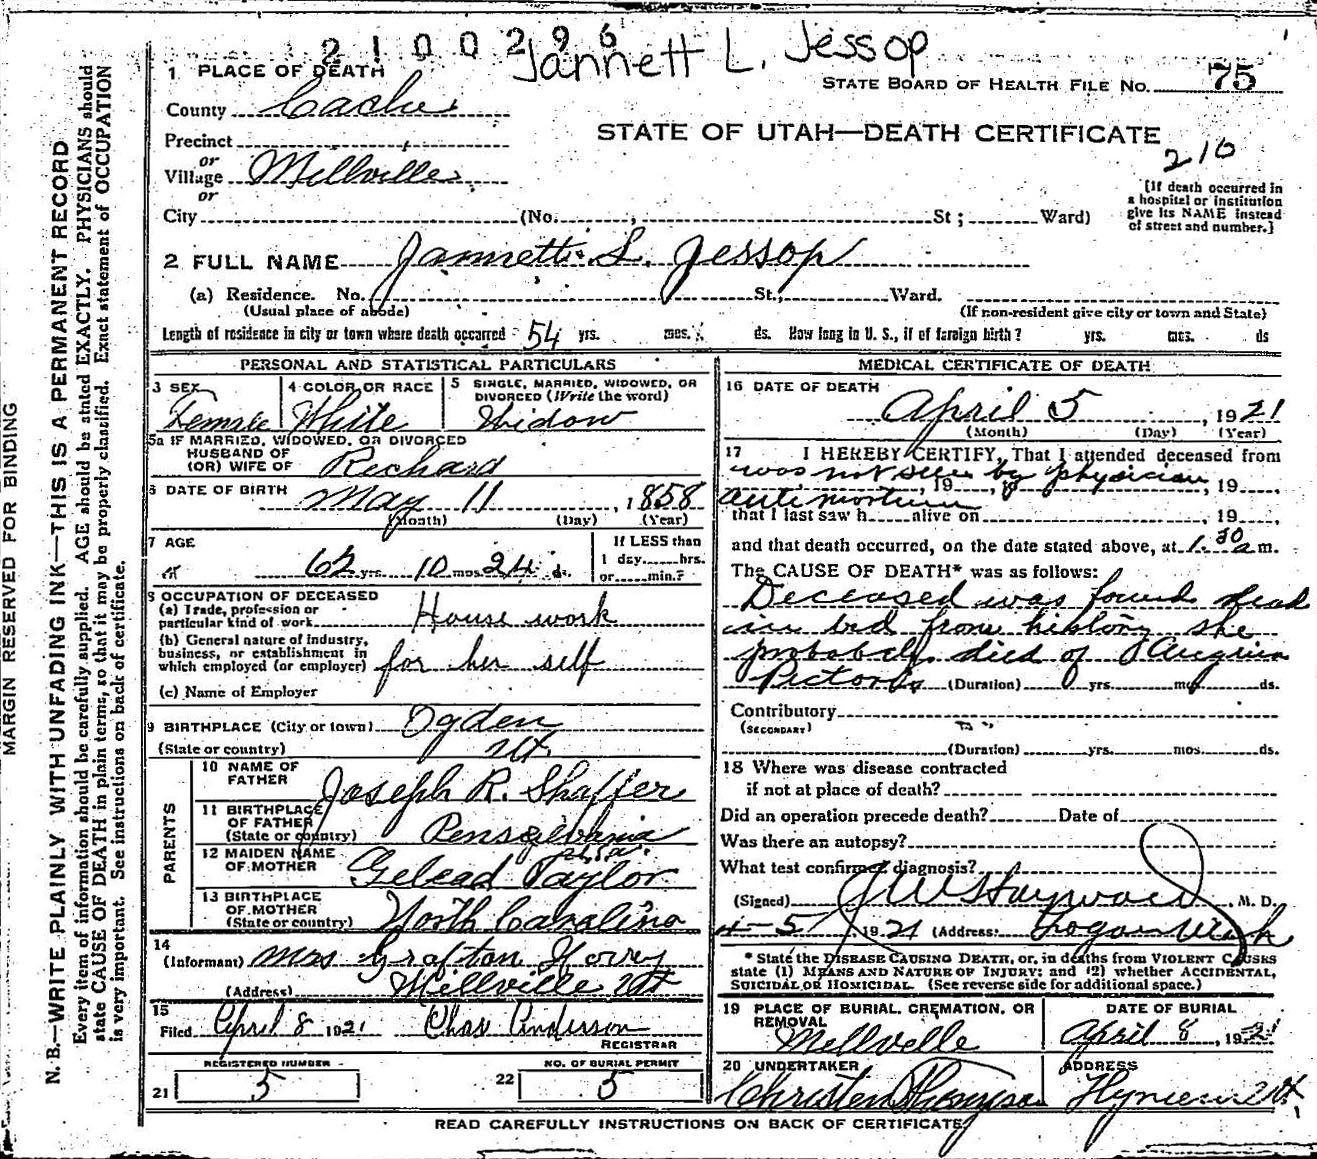 2100296
Jannett L. Jessop
1 PLACE OF DEATH
STATE BOARD OF HEALTH FILE NO. 75
County Cache
STATE OF UTAH—DEATH CERTIFICATE
210
Precinct
or
Village Millville
or
[If death occurred in
a hospital or institution
give its NAME instead
of street and number.]
City (No. , St; Ward)
2 FULL NAME Jannett L. Jessop
(a) Residence. No. St., Ward.
(Usual place of abode) (If non-resident give city or town and State)
Length of residence in city or town where death occurred 54 yrs. mos. ds. How long in U. S., if of foreign birth? yrs. mos. ds
PERSONAL AND STATISTICAL PARTICULARS
3 SEX 4 COLOR OR RACE 5 SINGLE, MARRIED, WIDOWED, OR
DIVORCED (Write the word)
Female White Widow
5a IF MARRIED, WIDOWED, OR DIVORCED
HUSBAND OF
(OR) WIFE OF Richard
6 DATE OF BIRTH May 11, 1858
(Month) (Day) (Year)
7 AGE If LESS than
62 yrs 10 mos 24 ds. 1 day hrs.
or min.?
8 OCCUPATION OF DECEASED
(a) Trade, profession or
particular kind of work House work
(b) General nature of industry,
business, or establishment in
which employed (or employer) for her self
(c) Name of Employer
9 BIRTHPLACE (City or town) Ogden
(State or country) Ut
PARENTS
10 NAME OF
FATHER Joseph R. Shaffer
11 BIRTHPLACE
OF FATHER
(State or country) Pensylvania
12 MAIDEN NAME
OF MOTHER Gelead Taylor
13 BIRTHPLACE
OF MOTHER
(State or country) North Caralina
14
(Informant) Mrs Grafton
(Address) Millville Ut
15
Filed April 8 1921 Chas Anderson
REGISTRAR
REGISTERED NUMBER NO. OF BURIAL PERMIT
21 5 22 5
MEDICAL CERTIFICATE OF DEATH
16 DATE OF DEATH
April 5, 1921
(Month) (Day) (Year)
17 I HEREBY CERTIFY, That I attended deceased from
was not seen by physician, 19
antimortum
that I last saw h alive on , 19
and that death occurred, on the date stated above, at 1.30 a m.
The CAUSE OF DEATH* was as follows:
Deceased was found dead
in bed from history she
probably died of Angina
Pictoris (Duration) yrs. mos ds.
Contributory
(SECONDARY)
(Duration) yrs. mos. ds.
18 Where was disease contracted
if not at place of death?
Did an operation precede death? Date of
Was there an autopsy?
What test confirmed diagnosis?
(Signed) J W Hayward M. D.
4-5 1921 (Address: Logan Utah
* State the DISEASE CAUSING DEATH, or, in deaths from VIOLENT CAUSES
state (1) MEANS AND NATURE OF INJURY; and (2) whether ACCIDENTAL,
SUICIDAL OR HOMICIDAL. (See reverse side for additional space.)
19 PLACE OF BURIAL, CREMATION, OR
REMOVAL
Millville
DATE OF BURIAL
April 8, 1921
20 UNDERTAKER ADDRESS
Christen Thompson Hyrum Ut
READ CAREFULLY INSTRUCTIONS ON BACK OF CERTIFICATE
MARGIN RESERVED FOR BINDING
N. B.—WRITE PLAINLY WITH UNFADING INK—THIS IS A PERMANENT RECORD
Every item of information should be carefully supplied. AGE should be stated EXACTLY. PHYSICIANS should
state CAUSE OF DEATH in plain terms, so that it may be properly classified. Exact statement of OCCUPATION
is very important. See instructions on back of certificate.